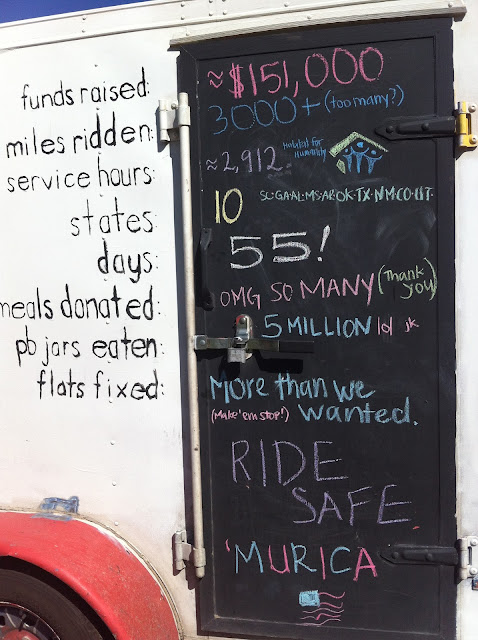 funds raised: ≈$151,000
miles ridden: 3000+ (too many?)
service hours: ≈2,912 Habitat for Humanity
states: 10 SC·GA·AL·MS·AR·OK·TX·NM·CO·UT·
days: 55!
meals donated: OMG SO MANY (Thank you)
pb jars eaten: 5 MILLION lol jk
flats fixed: More than we wanted.
(Make 'em stop!)
RIDE
SAFE
'MURICA